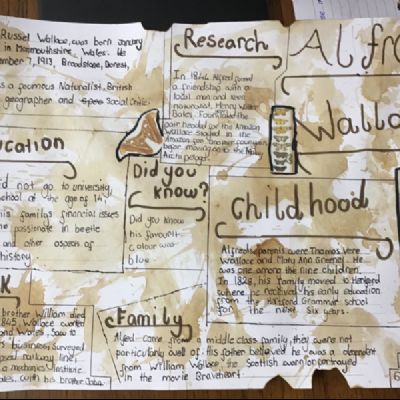 Russel Wallace, was born January
in Monmouthshire, Wales. He
ember 7, 1913, Broadstone, Dorest,
s a famous Naturalist, British
geographer and Social Critic.
Research
In 1844 Alfred formed
a friendship with a
local man and keen
naturalist, Henry Walter
Bates. Four years later the
pair headed for the Amazon
Wallace stayed in the
Amazon for another four years
before moving on to the Malay
Archipelago.
Alfre
Walla
cation
id not go to university,
school at the age of 14,
his familys financial issues
me passionate in beetle
and other aspects of
history
Did you
know?
Did you know
his favourite
colour was
blue
Childhood
Alfreds parents were Thomas Vere
Wallace and Mary Ann Greenel. He
was one among the nine children.
In 1828, his family moved to Hertford
where he received his early education
from the Hatford Grammer School
for the next six years.
K
brother William died
845 Wallace worked
and Wales. Soon to
s business, Surveyed
posed railway line,
a mechanics institute
ales, with his brother John.
Family
Alfred came from a middle class family, they were not
particularly well of. His father believed he was a dependent
from William Wallace, the Scottish warrior portrayed
in the movie Braveheart.